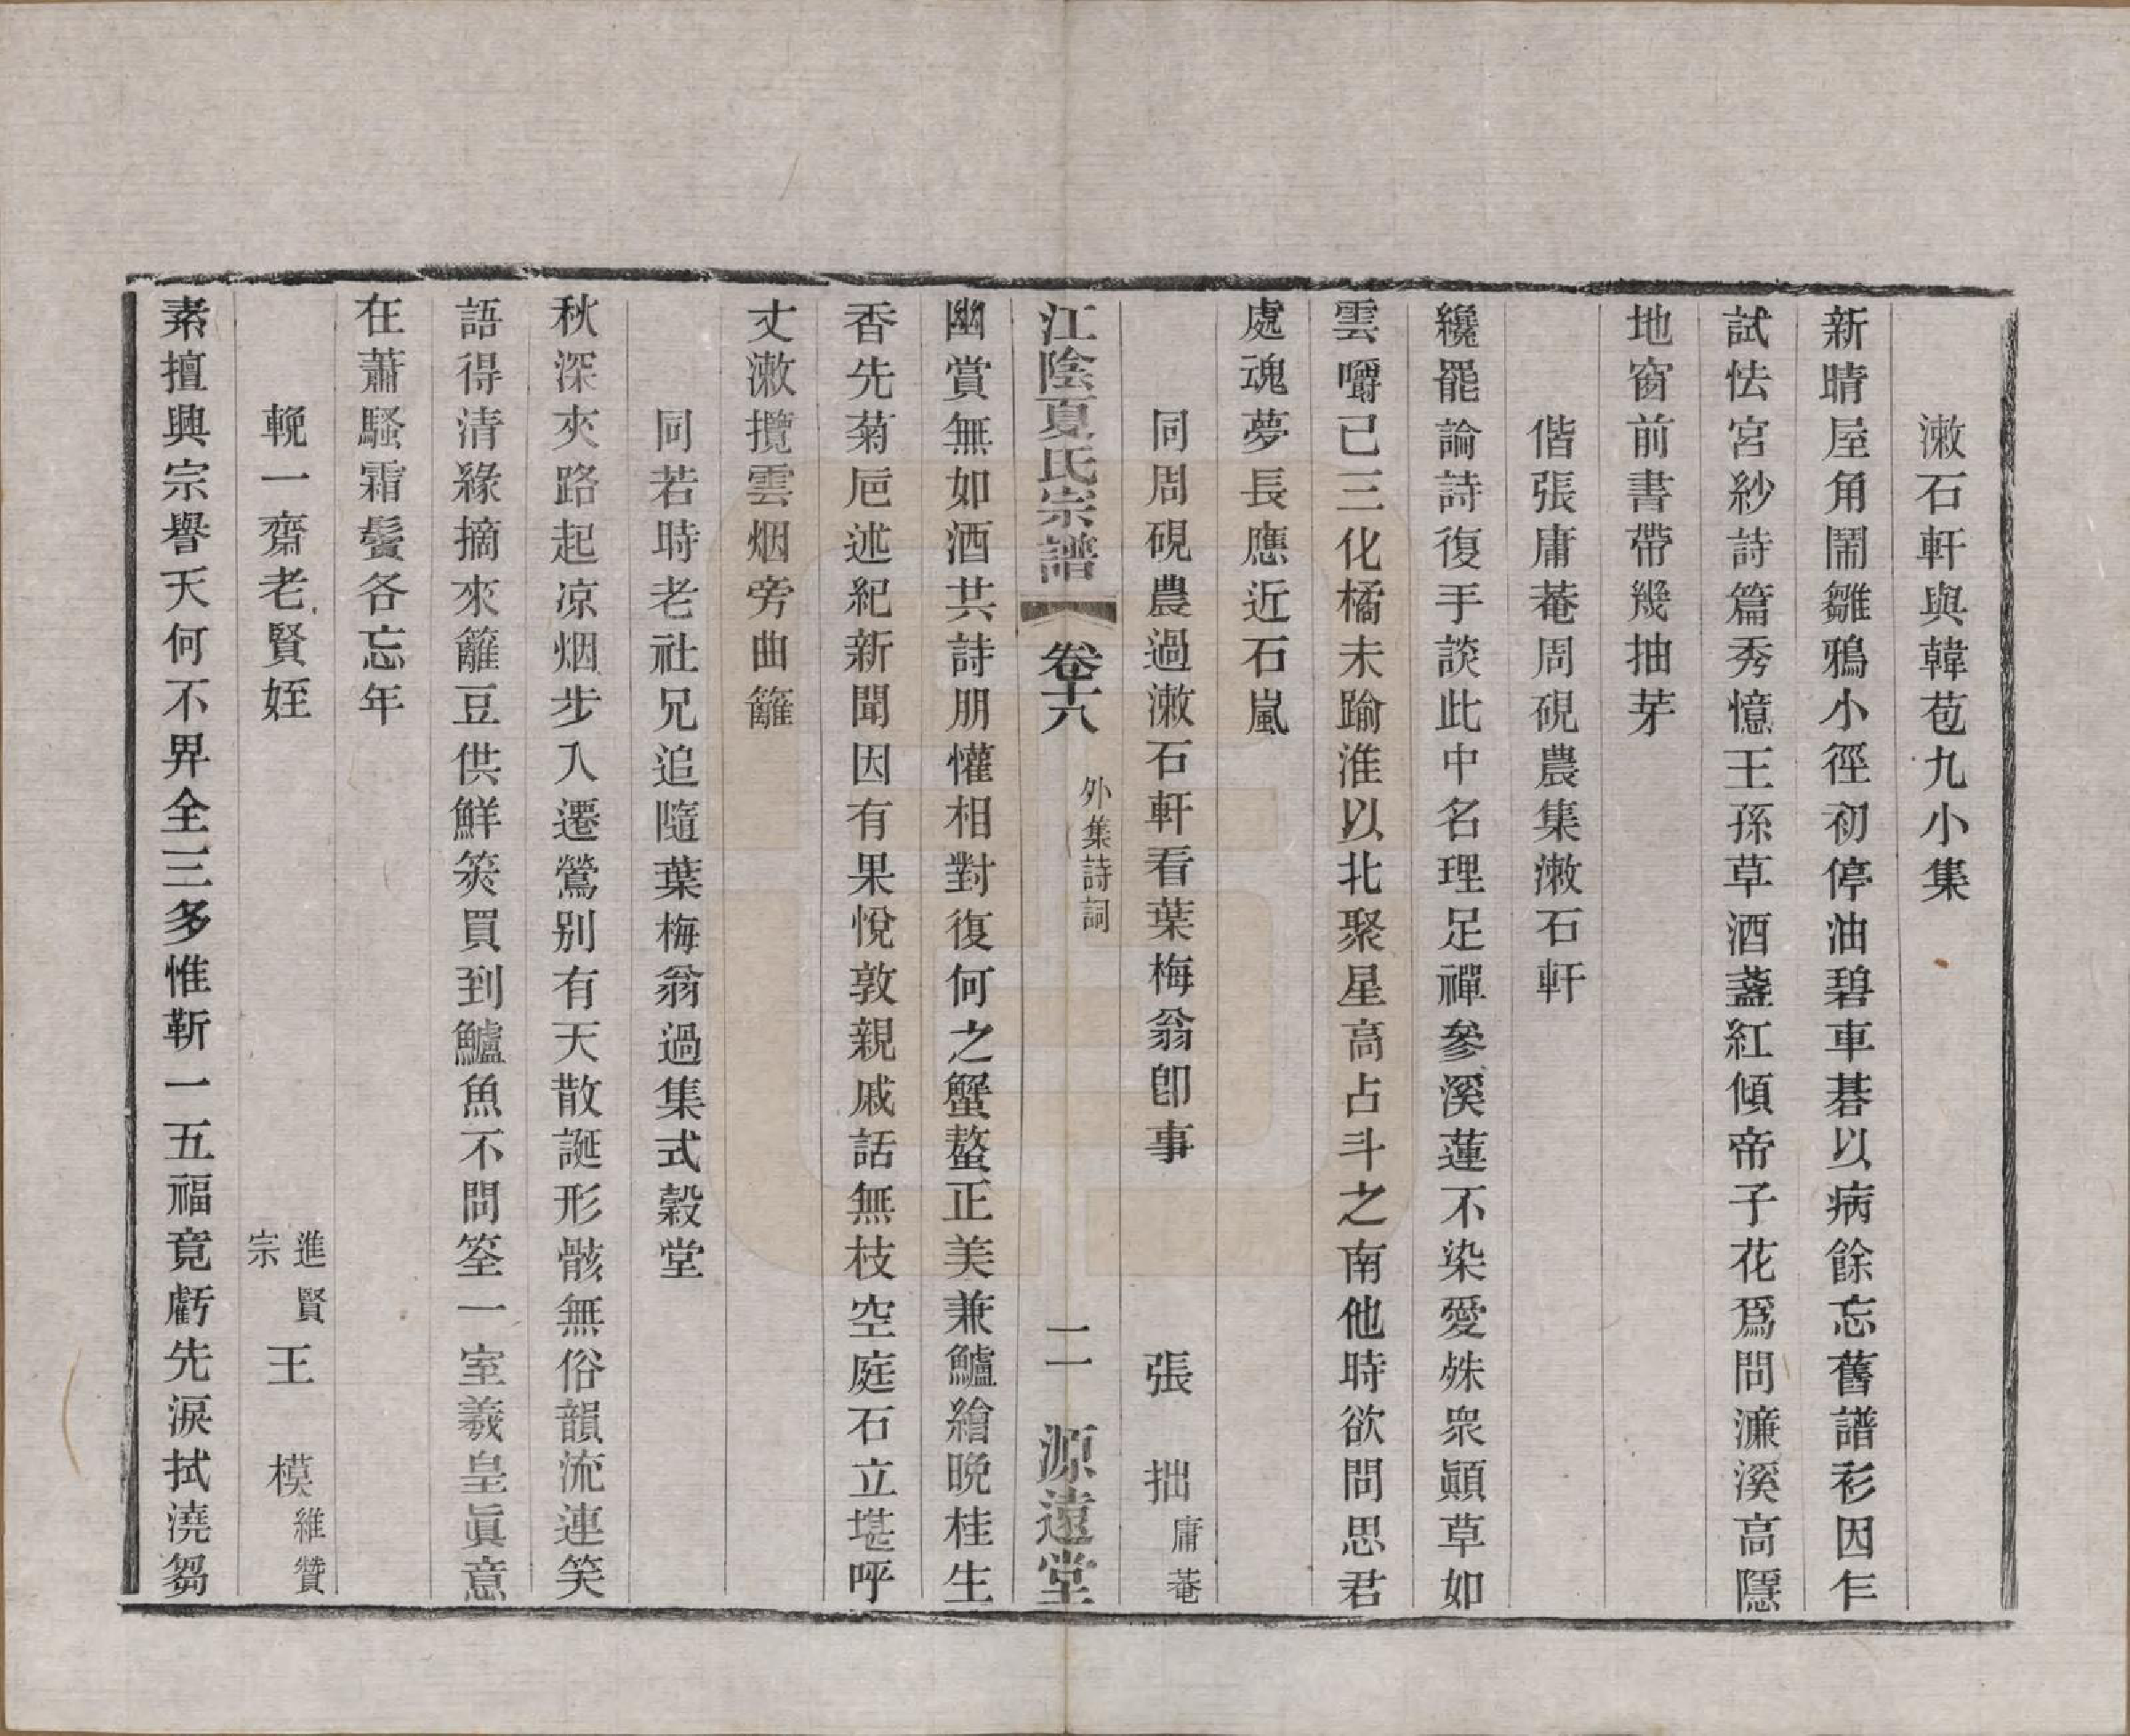 漱石軒與韓苞九小集
新晴屋角鬧雛鴉小徑初停油碧車碁以病餘忘舊譜衫因乍
試怯宮紗詩篇秀憶王孫草酒盞紅傾帝子花爲問濂溪高隱
地窗前書帶幾抽芽
偕張庸菴周硯農集漱石軒
纔罷論詩復手談此中名理足禪參溪蓮不染愛殊衆顚草如
雲嚼已三化橘未踰淮以北聚星高占斗之南他時欲問思君
處魂夢長應近石嵐
同周硯農過漱石軒看葉梅翁卽事 張 拙 庸菴
江陰夏氏宗譜 卷十六 外集詩詞 二一 源遠堂
幽賞無如酒共詩朋懽相對復何之蟹螯正美兼鱸繪晩桂生
香先菊巵述紀新聞因有果悅敦親戚話無枝空庭石立堪呼
丈漱攬雲烟旁曲籬
同若時老社兄追隨葉梅翁過集式穀堂
秋深夾路起凉烟步入遷鶯别有天散誕形骸無俗韻流連笑
語得清緣摘來籬豆供鮮筴買到鱸魚不問筌一室羲皇眞意
在蕭騷霜鬢各忘年
輓一齋老賢姪 進賢宗 王 模 維贊
素擅興宗譽天何不畀全三多惟靳一五福竟虧先淚拭澆芻